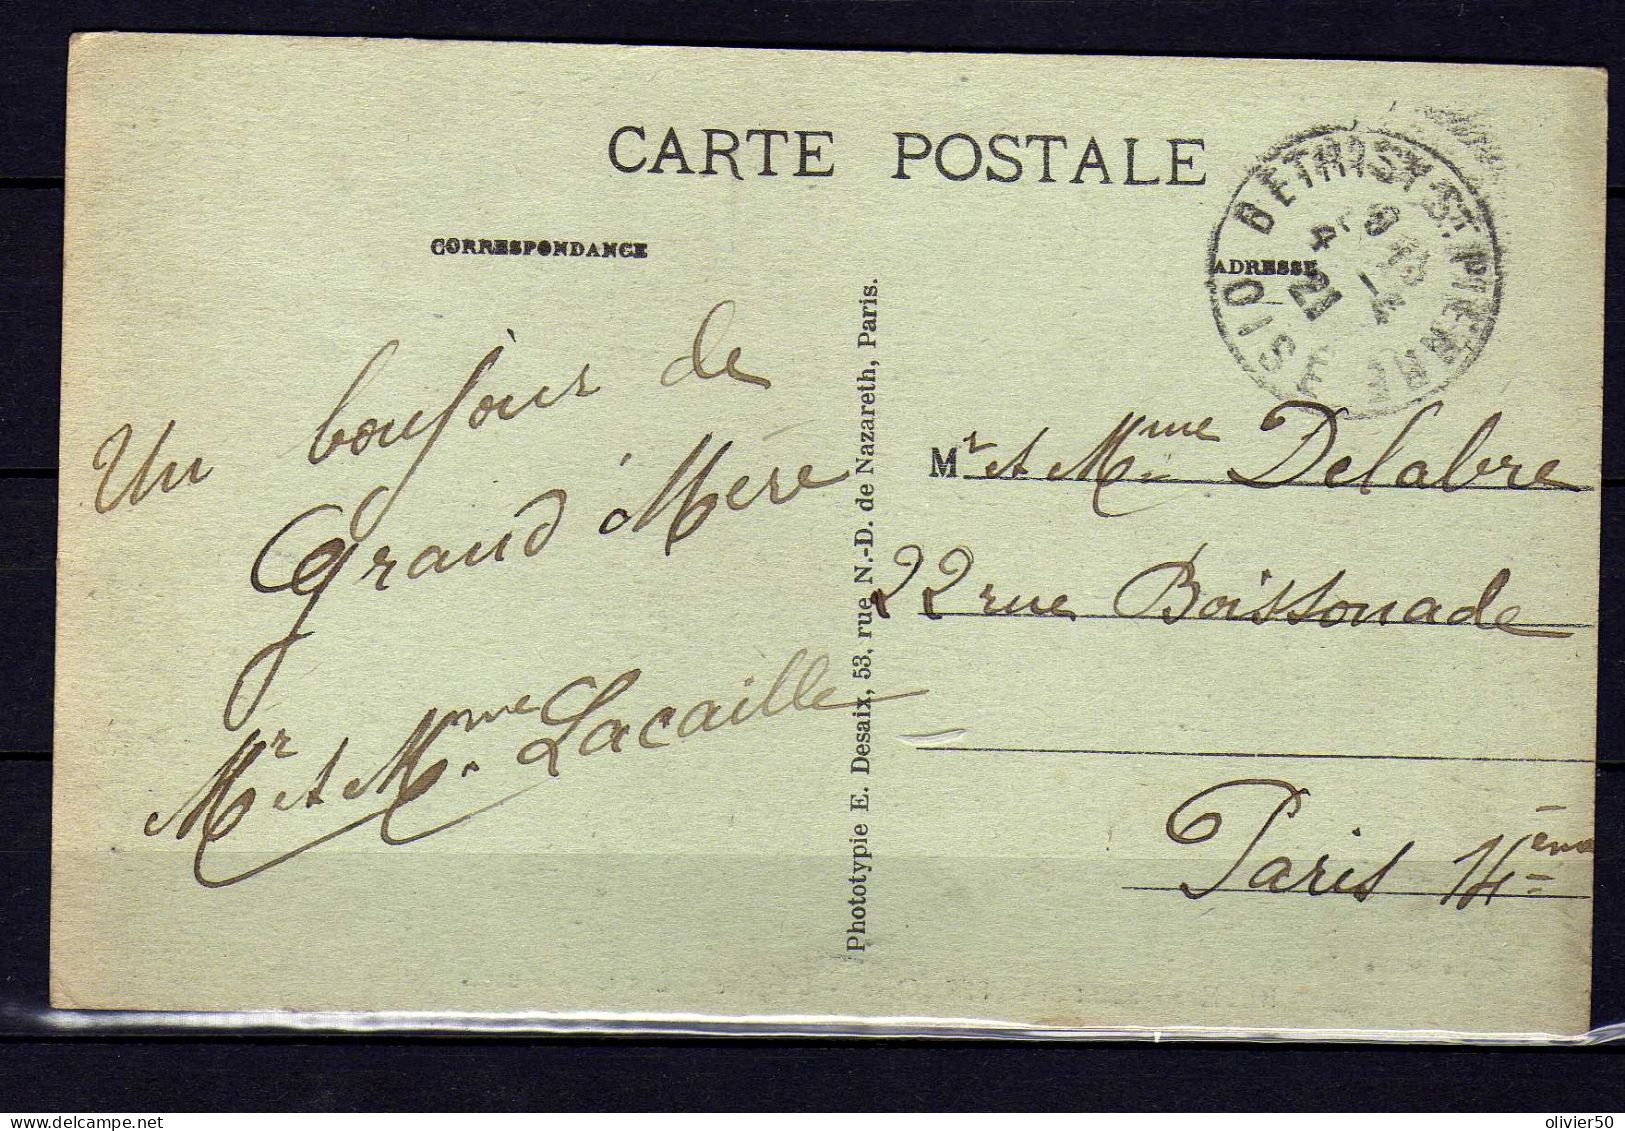 CARTE POSTALE
CORRESPONDANCE
ADRESSE
BETHISY-ST-PIERRE
OISE
21
Un bonjour de
Grand'Mère
Mr et Mme Lacaille
Phototypie E. Desaix, 53, rue N.-D. de Nazareth, Paris.
Mr et Mme Delabre
22 rue Boissonade
Paris 14ème
olivier50